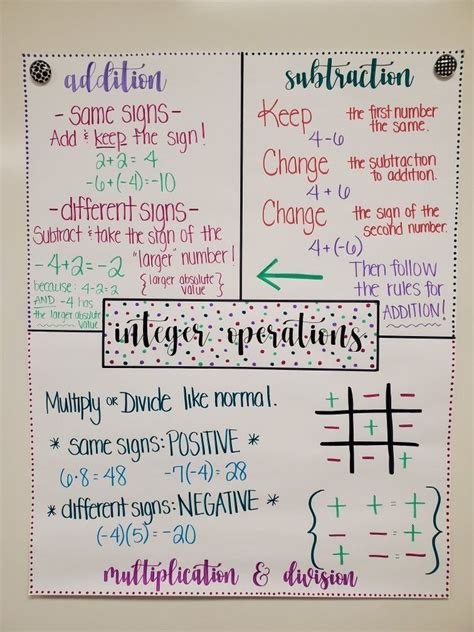 addition
- same signs -
Add & keep the sign!
2+2=4
-6+(-4)=-10
- different signs -
Subtract & take the sign of the
"larger" number!
-4+2=-2
{larger absolute value}
because: 4-2=2
AND -4 has
the larger absolute
value
subtraction
Keep the first number
the same.
4-6
Change the subtraction
to addition.
4+6
Change the sign of the
second number.
4+(-6)
Then follow
the rules for
ADDITION!
integer operations
Multiply or Divide like normal.
* same signs: POSITIVE *
6·8=48 -7(-4)=28
* different signs: NEGATIVE *
(-4)(5)=-20
+ - -
- + -
- - +
+ + = +
multiplication & division